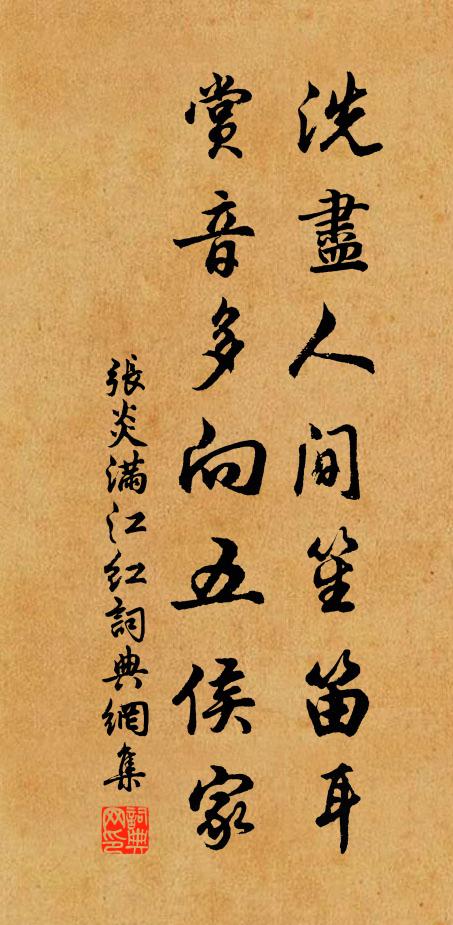 洗盡人間笙笛耳
賞音多向五侯家
張炎滿江紅詞典網集
詞典網印